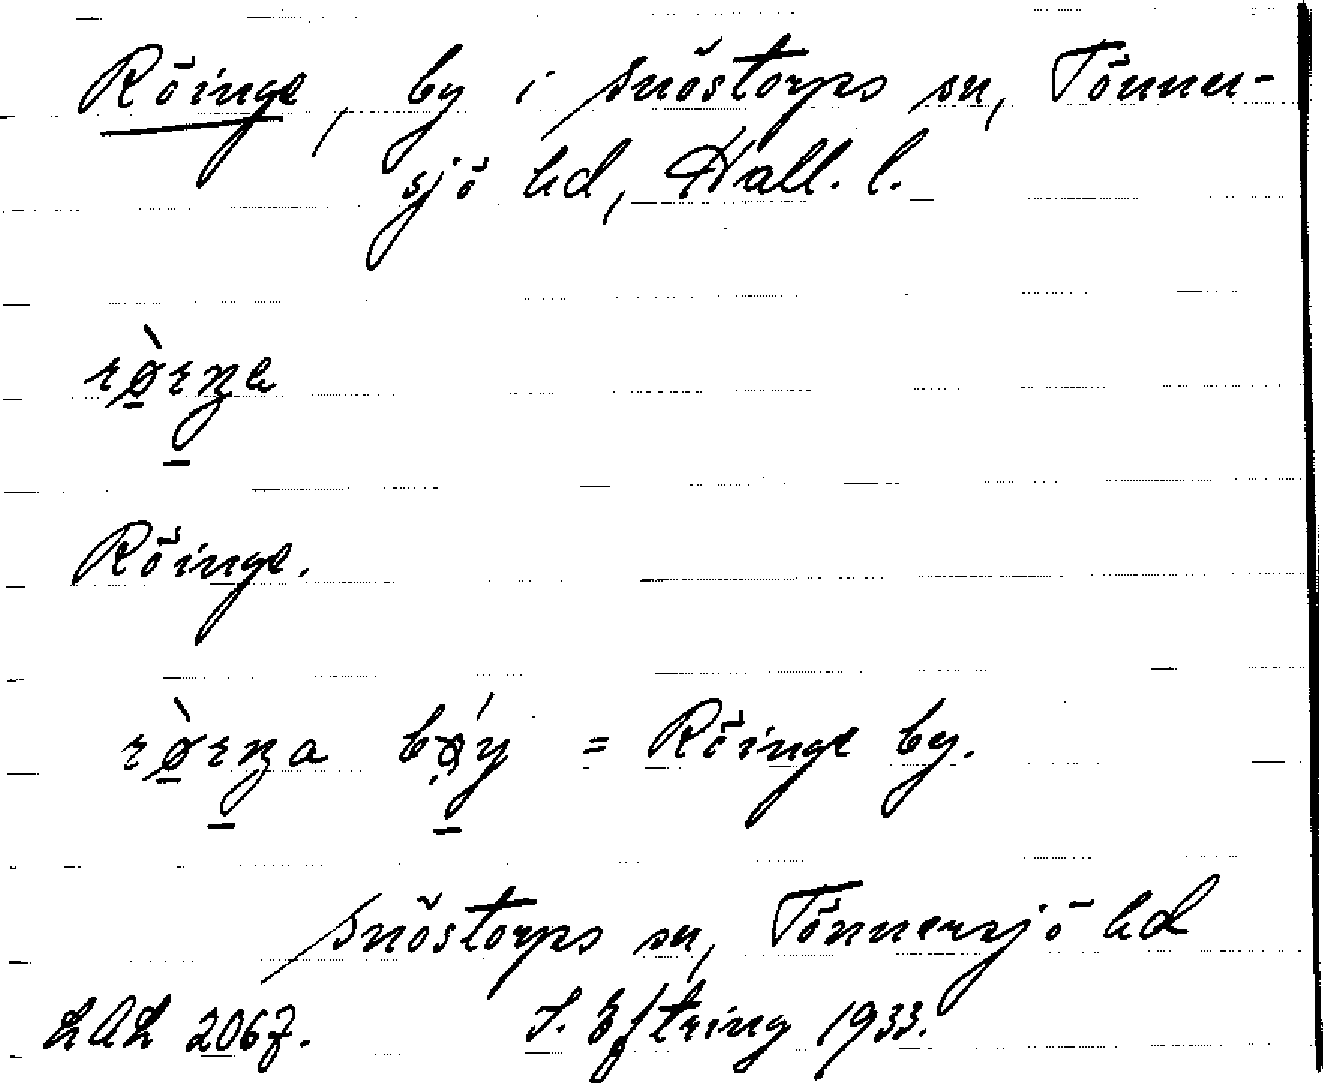 Röinge, by i Snöstorps sn, Tönner-
sjö hd, Hall. l.
Röinge.
= Röinge by.
Snöstorps sn, Tönnersjö hd
LAL 2067. S. Eftring 1933.